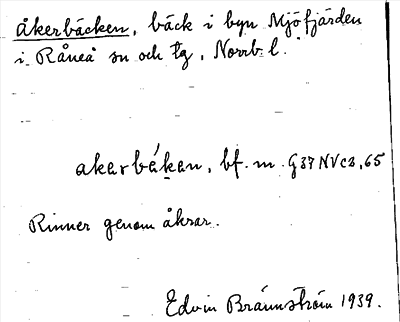 Åkerbäcken, bäck i byn Mjöfjärden
i Råneå sn och tg, Norrb. l.
akarbákan, bf. m. G37NVc3,65
Rinner genom åkrar.
Edvin Brännström 1939.